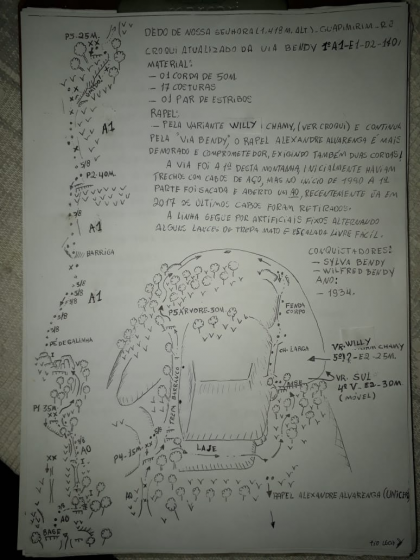 DEDO DE NOSSA SENHORA (1.418 M. ALT.) - GUAPIMIRIM - RJ
CROQUI ATUALIZADO DA VIA BENDY 1º A1-E1-D2-
MATERIAL:
- 01 CORDA DE 50M
- 17 COSTURAS
- 01 PAR DE ESTRIBOS
RAPEL:
- PELA VARIANTE WILLY CHAMY, (VER CROQUI) E CONTINUA
PELA "VIA BENDY", O RAPEL ALEXANDRE ALVARENGA É MAIS
DEMORADO E COMPROMETEDOR, EXIGINDO TAMBÉM DUAS CORDAS!
A VIA FOI A 1ª DESTA MONTANHA, INICIALMENTE HAVIAM
TRECHOS COM CABOS DE AÇO, MAS NO INÍCIO DE 1990 A 1ª
PARTE FOI SACADA E ABERTO UM A0, RECENTEMENTE JÁ EM
2017 OS ÚLTIMOS CABOS FORAM RETIRADOS.
A LINHA SEGUE POR ARTIFICIAIS FIXOS ALTERNANDO
ALGUNS LANCES DE TREPA MATO E ESCALADA LIVRE FÁCIL.
CONQUISTADORES:
- SYLVA BENDY
- WILFRED BENDY
ANO:
- 1934.
P3-25M
A1
5/8
P2-40M
A1
BARRIGA
5/8
A1
5/8
PÉ DE GALINHA
P1-35M
A0
A0
BASE
P5 ÁRVORE-50M
FENDA
CORPO
LARGA
VR. WILLY
CHAMY
E2-25M.
VR. SUL
4º V-E2-30M
(MÓVEL)
TREPA
P4-35M
LAJE
A0
RAPEL ALEXANDRE ALVARENGA